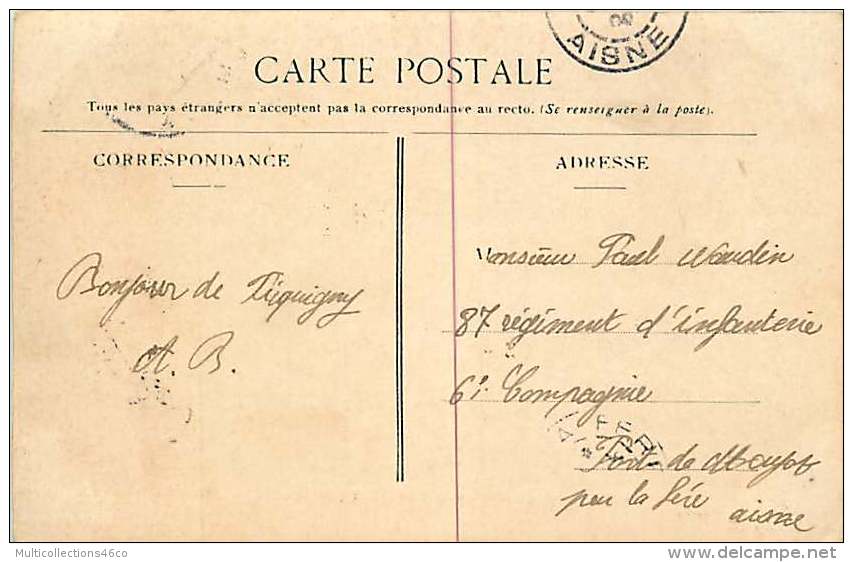 08
AISNE
CARTE POSTALE
Tous les pays étrangers n'acceptent pas la correspondance au recto. (Se renseigner à la poste).
CORRESPONDANCE
ADRESSE
Bonjour de
A. B.
Monsieur Paul
87 régiment d'infanterie
6e Compagnie
Fort de Mayot
par la Fère
aisne
LA FERE
Multicollections46co
delcampe.net